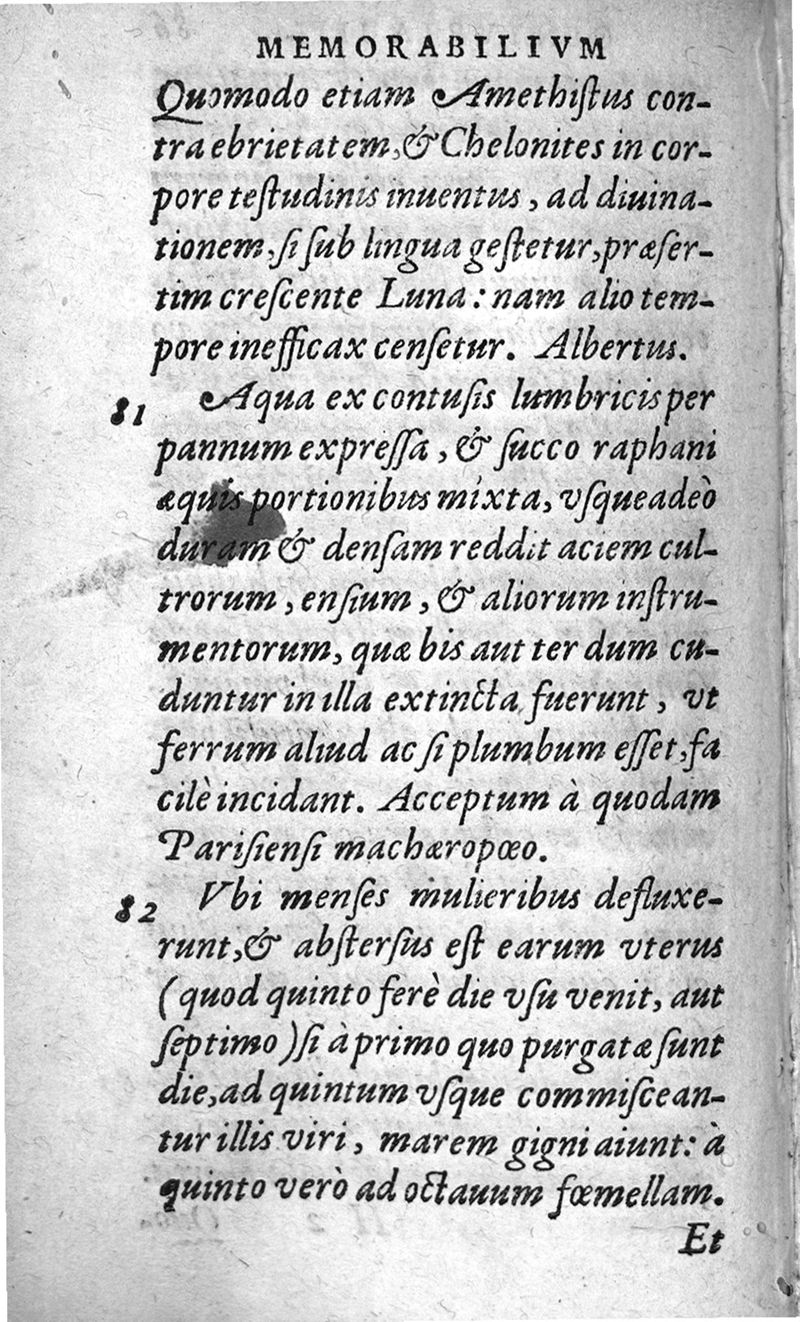 MEMORABILIVM
Quomodo etiam Amethiſtus con-
tra ebrietatem, & Chelonites in cor-
pore teſtudinis inuentus, ad diuina-
tionem, ſi ſub lingua geſtetur, præſer-
tim creſcente Luna: nam alio tem-
pore inefficax cenſetur. Albertus.
81 Aqua ex contuſis lumbricis per
pannum expreſſa, & ſucco raphani
æquis portionibus mixta, vſqueadeò
duram & denſam reddit aciem cul-
trorum, enſium, & aliorum inſtru-
mentorum, quæ bis aut ter dum cu-
duntur in illa extincta fuerunt, vt
ferrum aliud ac ſi plumbum eſſet, fa
cilè incidant. Acceptum à quodam
Pariſienſi machæropœo.
82 Vbi menſes mulieribus defluxe-
runt, & abſterſus eſt earum vterus
(quod quinto ferè die vſu venit, aut
ſeptimo) ſi à primo quo purgatæ ſunt
die, ad quintum vſque commiſcean-
tur illis viri, marem gigni aiunt: à
quinto verò ad octauum fœmellam.
Et